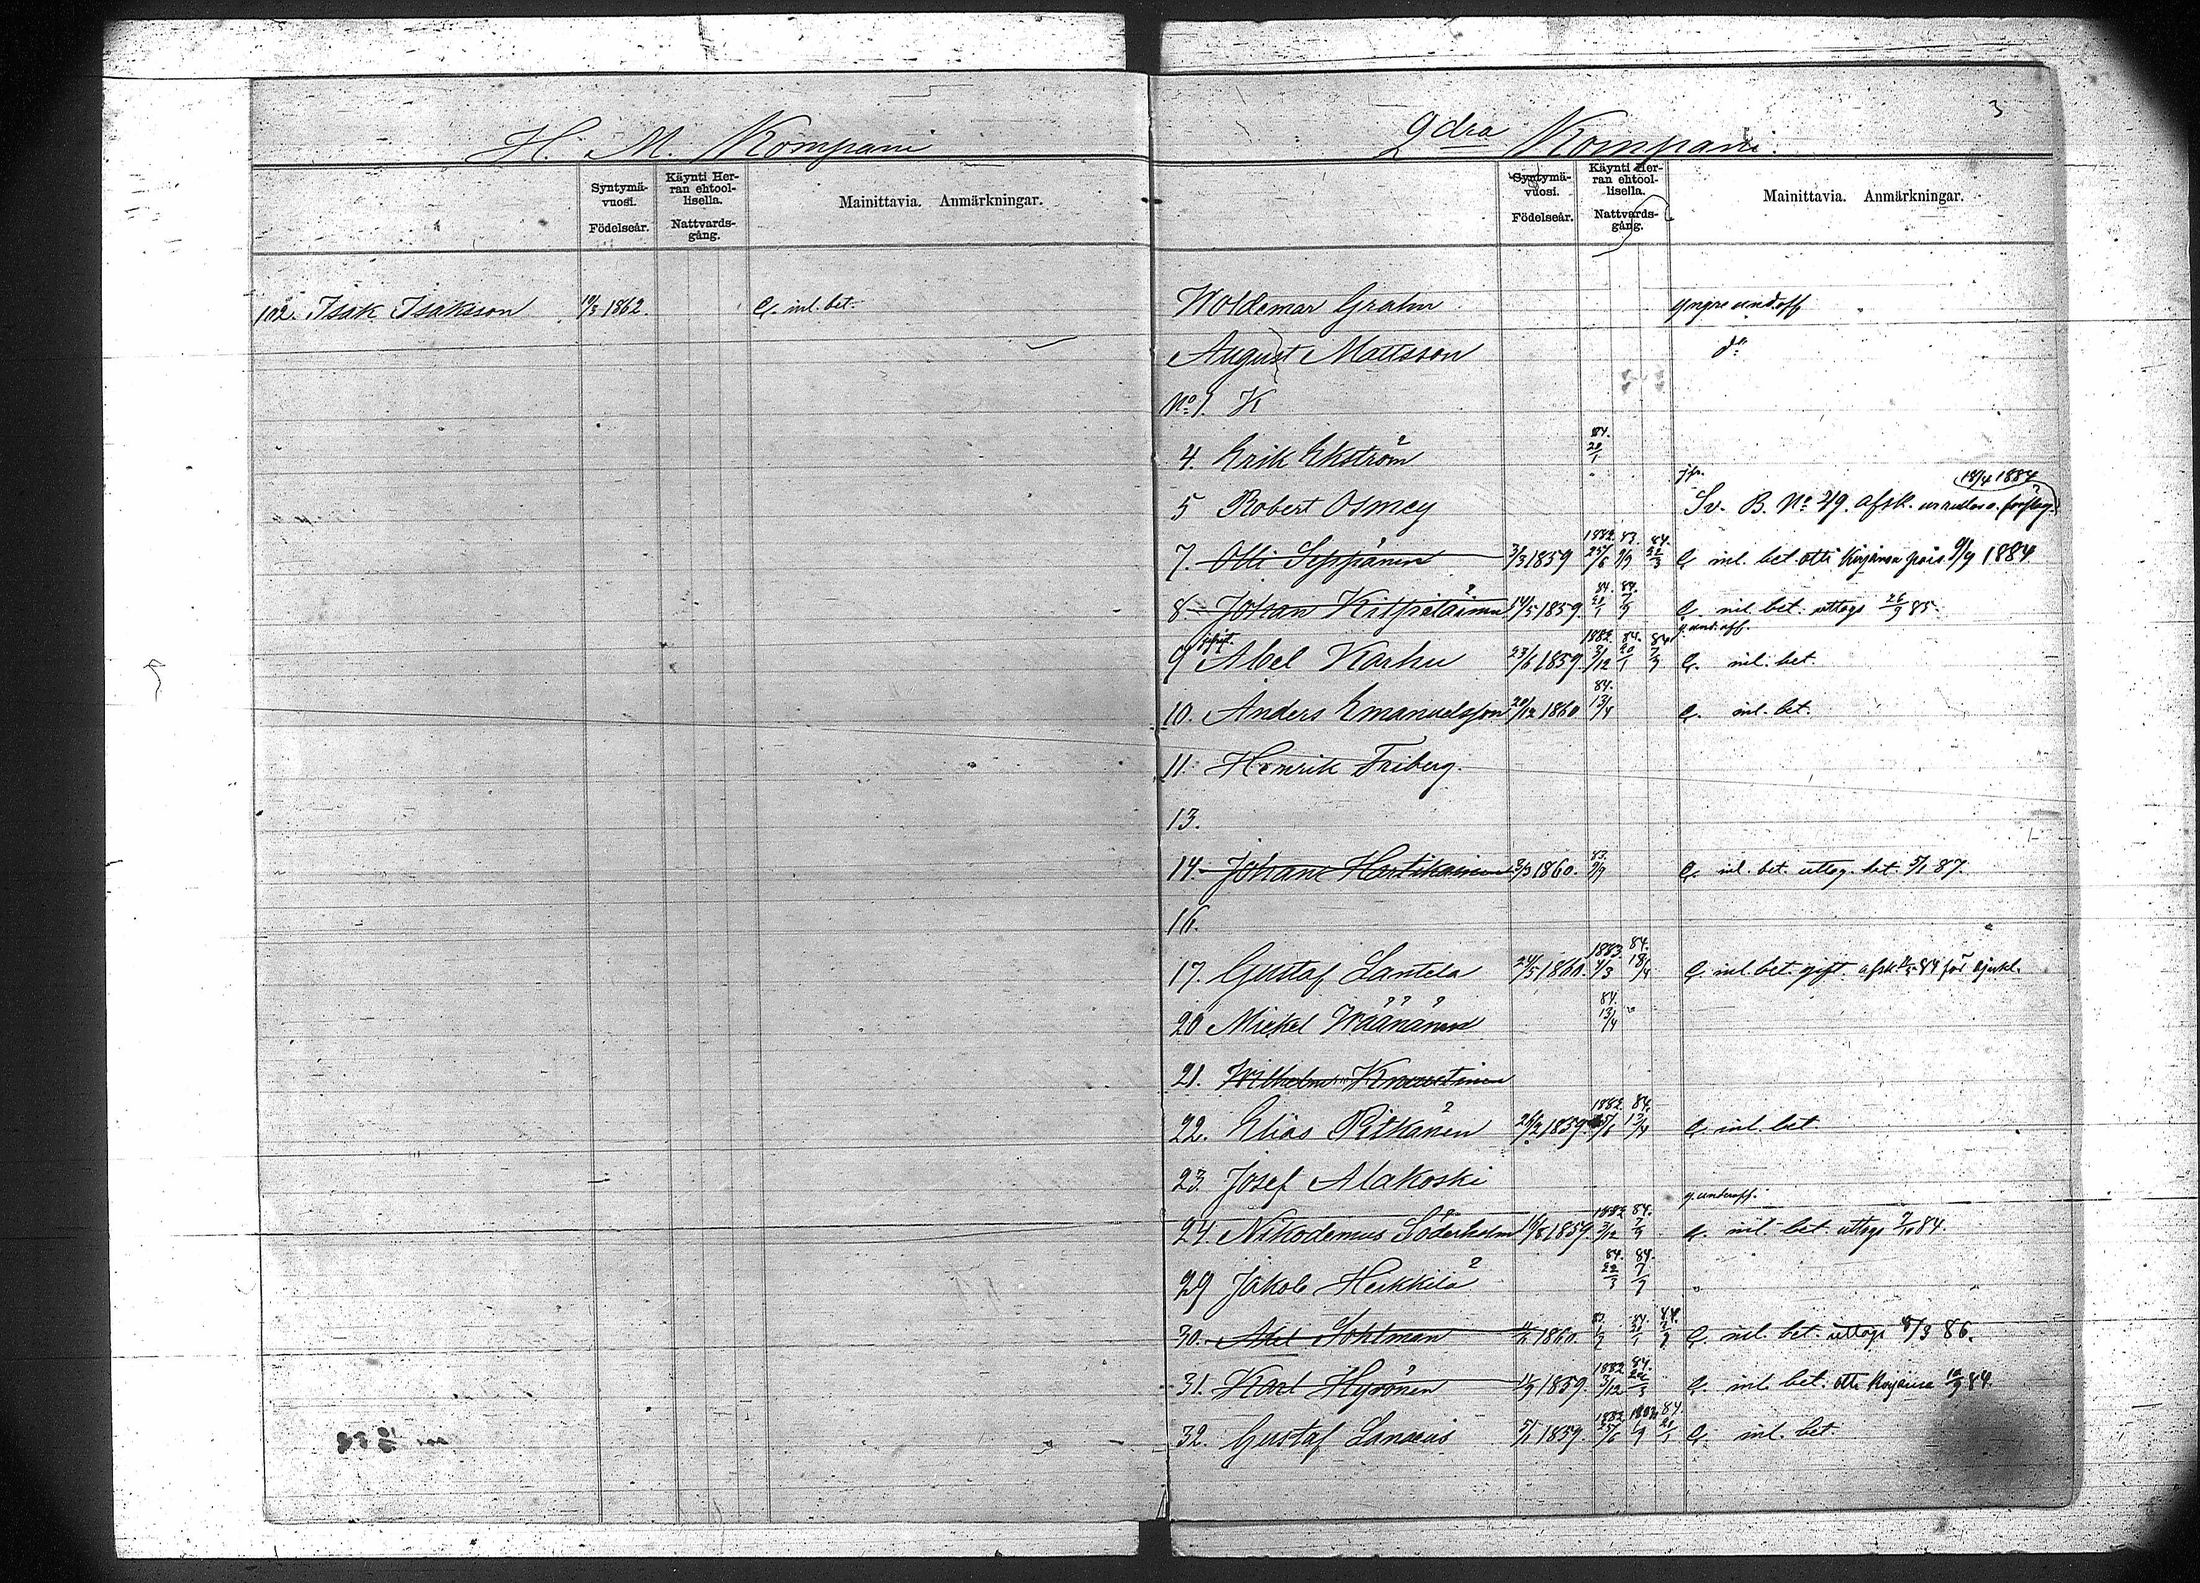 H. M. Kompani
Syntymä-
vuosi.
Födelseår.
Käynti Her-
ran ehtool-
lisella.
Nattvards-
gång.
Mainittavia. Anmärkningar.
102. Isak Isaksson 19/3 1862. inl. bet.
3
2dra Kompani.
Syntymä-
vuosi.
Födelseår.
Käynti Her-
ran ehtool-
lisella.
Nattvards-
gång.
Mainittavia. Anmärkningar.
Woldemar Grahn yngre und.off
August Mattsson do
No 1. K
4. Erik Ekström 84. 20/1
5 Robert Osmey Sv. B. No 29. afsk. 18/4 1884
7. Olli Seppänen 3/3 1859 1882. 25/6 83. 9/9 84. 22/3 inl. bet. otti Kirjansa pois 9/9 1884
8. Johan 14/5 1859. 84. 21/1 84. 7/9 inl. bet. uttogs 26/9 85.
9 Abel Karhu 23/6 1859. 1882. 3/12 84. 20/1 84. 7/9 y. und.off. inl. bet.
10. Anders Emanuelsson 20/12 1860 84. 13/4 inl. bet.
11. Henrik Friberg.
13.
14. Johan Hartikainen 3/3 1860. 83. 9/9 inl. bet. uttog. bet. 5/1 87.
16.
17. Gustaf Lantela 24/5 1860. 1883. 4/3 84. 13/4 inl. bet. gift. afsk. 84 för sjukl.
20 Mickel Wäänänen 84. 13/4
21. Wilhelm Knuutinen
22. Elias Pitkänen 26/2 1859. 1882. 25/6 84. 13/4 inl. bet
23. Josef Alakoski
24. Nikodemus Söderholm 16/8 1859. 1882 3/12 84. 7/9 y. underoff. inl. bet. uttogs 7/10 84.
29 Jakob Heikkilä 84. 22/3 84. 7/9
30. Axel Sohlman 1860. 84. 21/1 84. 7/9 inl. bet. uttogs 8/3 86.
31. Karl Hyvönen 11/9 1859. 1882 3/12 84. 22/3 inl. bet. otti Kirjansa 10/9 84.
32. Gustaf Lanaeus 5/1 1859. 1882 25/6 84. 21/1 inl. bet.